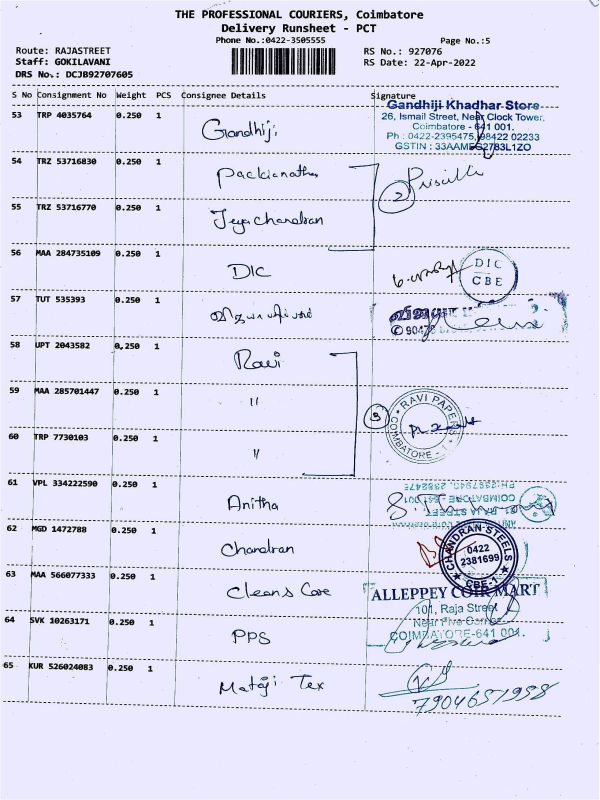 THE PROFESSIONAL COURIERS, Coimbatore
Delivery Runsheet - PCT
Phone No.:0422-3505555
Page No.:5
Route: RAJASTREET
RS No.: 927076
Staff: GOKILAVANI
RS Date: 22-Apr-2022
DRS No.: DCJB92707605
S No Consignment No Weight PCS Consignee Details Signature
53 TRP 4035764 0.250 1 Gandhiji
Gandhiji Khadhar Store
26, Ismail Street, Near Clock Tower,
Coimbatore - 641 001.
Ph : 0422-2395475, 98422 02233
GSTIN : 33AAMFG2783L1ZO
54 TRZ 53716830 0.250 1 Packianathan
2 Priscilla
55 TRZ 53716770 0.250 1 Jeyachandran
56 MAA 284735109 0.250 1 DIC
DIC
CBE
57 TUT 535393 0.250 1
58 UPT 2043582 0.250 1 Ravi
59 MAA 285701447 0.250 1 "
3 RAVI PAPERS COIMBATORE - 1
60 TRP 7730103 0.250 1 "
61 VPL 334222590 0.250 1 Anitha
RAJA STREET
COIMBATORE - 641 001
62 MGD 1472788 0.250 1 Chandran
CHANDRAN STEELS
0422
2381699
CBE-1
63 MAA 566077333 0.250 1 Cleans Care
ALLEPPEY COIR MART
101, Raja Street
Near Five Corner
COIMBATORE-641 001.
64 SVK 10263171 0.250 1 PPS
65 KUR 526024083 0.250 1 Mataji Tex
7904651958